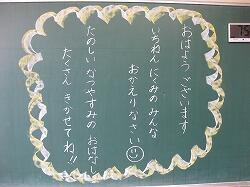 おはよう ございます
いちねん にくみの みんな
おかえりなさい☺
たのしい なつやすみの おはなし
たくさん きかせてね!!
75